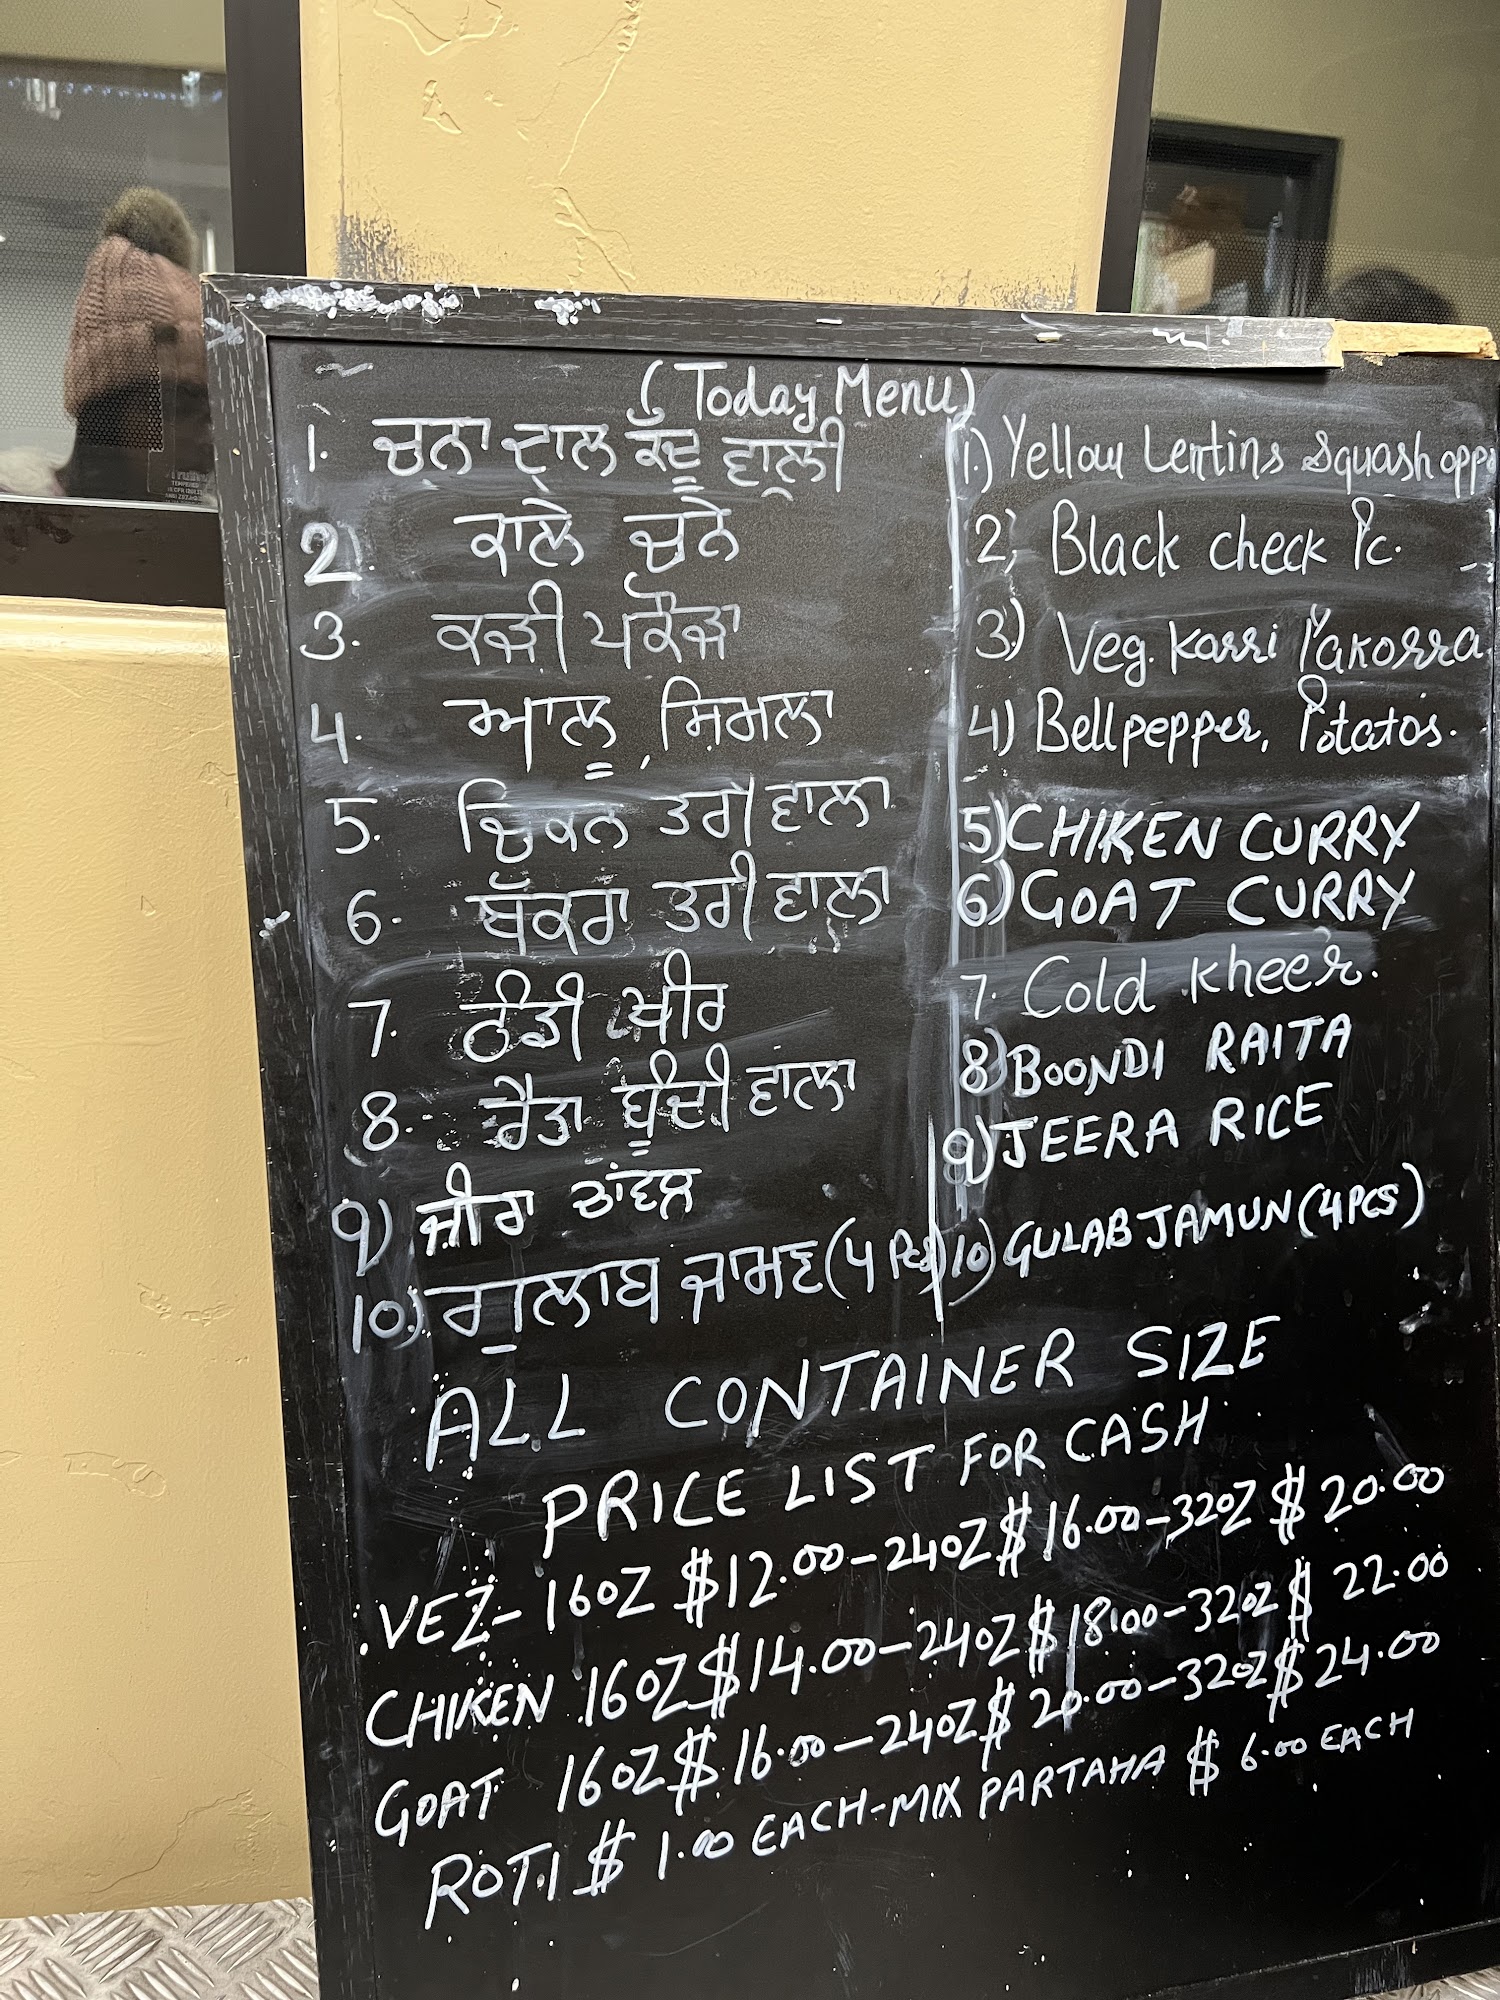 ( Today Menu)
1. ਚਨਾ ਦਾਲ ਕੱਦੂ ਵਾਲੀ
2. ਕਾਲੇ ਚਨੇ
3. ਕੜੀ ਪਕੌੜਾ
4. ਆਲੂ ਸ਼ਿਮਲਾ
5. ਚਿਕਨ ਤਰੀ ਵਾਲਾ
6. ਬੱਕਰਾ ਤਰੀ ਵਾਲਾ
7. ਠੰਡੀ ਖੀਰ
8. ਰੈਤਾ ਬੂੰਦੀ ਵਾਲਾ
9) ਜੀਰਾ ਚਾਂਵਲ
10) ਗੁਲਾਬ ਜਾਮਣ (4 Pcs)
1.) Yellow Lentins Squash
2, Black check Pc.
3.) Veg. Karri Pakorra
4) Bellpepper, Potatos.
5) CHIKEN CURRY
6) GOAT CURRY
7. Cold Kheer.
8) BOONDI RAITA
9) JEERA RICE
10) GULAB JAMUN (4 PCS)
ALL CONTAINER SIZE
PRICE LIST FOR CASH
VEZ- 16OZ $12.00-24OZ $16.00-32OZ $20.00
CHIKEN 16OZ $14.00-24OZ $18.00-32OZ $22.00
GOAT 16OZ $16.00-24OZ $20.00-32OZ $24.00
ROTI $1.00 EACH-MIX PARTAHA $6.00 EACH